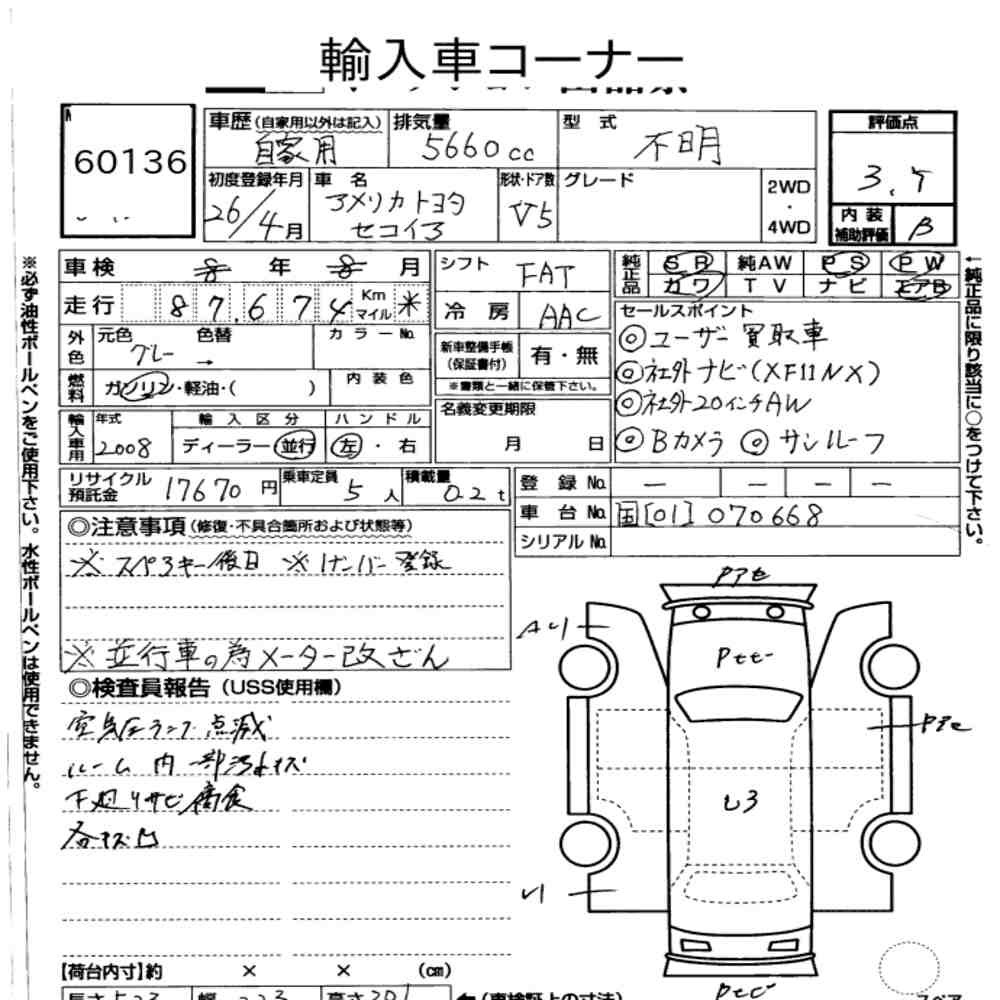 輸入車コーナー
60136
車歴 (自家用以外は記入) 自家用
排気量 5660cc
型式 不明
評価点 3.5
内装補助評価 B
初度登録年月 26/4月
車名 アメリカトヨタ セコイヤ
形状・ドア数 V5
グレード
2WD・4WD
車検 8年 8月
シフト FAT
純正品 SR 純AW PS PW
カワ TV ナビ エアB
走行 87,674 Km マイル *
冷房 AAC
セールスポイント
◎ユーザー買取車
◎社外ナビ(XF11NX)
◎社外20インチAW
◎Bカメラ ◎サンルーフ
外色 元色 グレー 色替 → カラーNo.
新車整備手帳(保証書付) 有・無
※書類と一緒に保管下さい。
燃料 ガソリン・軽油・( ) 内装色
名義変更期限 月 日
輸入車用 年式 2008 輸入区分 ディーラー・並行 ハンドル 左・右
リサイクル預託金 17670円 乗車定員 5人 積載量 0.2t
登録No. − − − −
車台No. 国[01]070668
シリアルNo.
◎注意事項(修復・不具合箇所および状態等)
※スペアキー後日 ※1ナンバー登録
※並行車の為メーター改ざん
◎検査員報告(USS使用欄)
空気圧ランプ点滅
ルーム内一部汚れキズ
下廻りサビ腐食
各キズ凹
【荷台内寸】約 × × (cm)
長さ523 幅223 高さ201 ←(車検証上の寸法)
スペア
※必ず油性ボールペンをご使用下さい。水性ボールペンは使用できません。
←純正品に限り該当に○をつけて下さい。